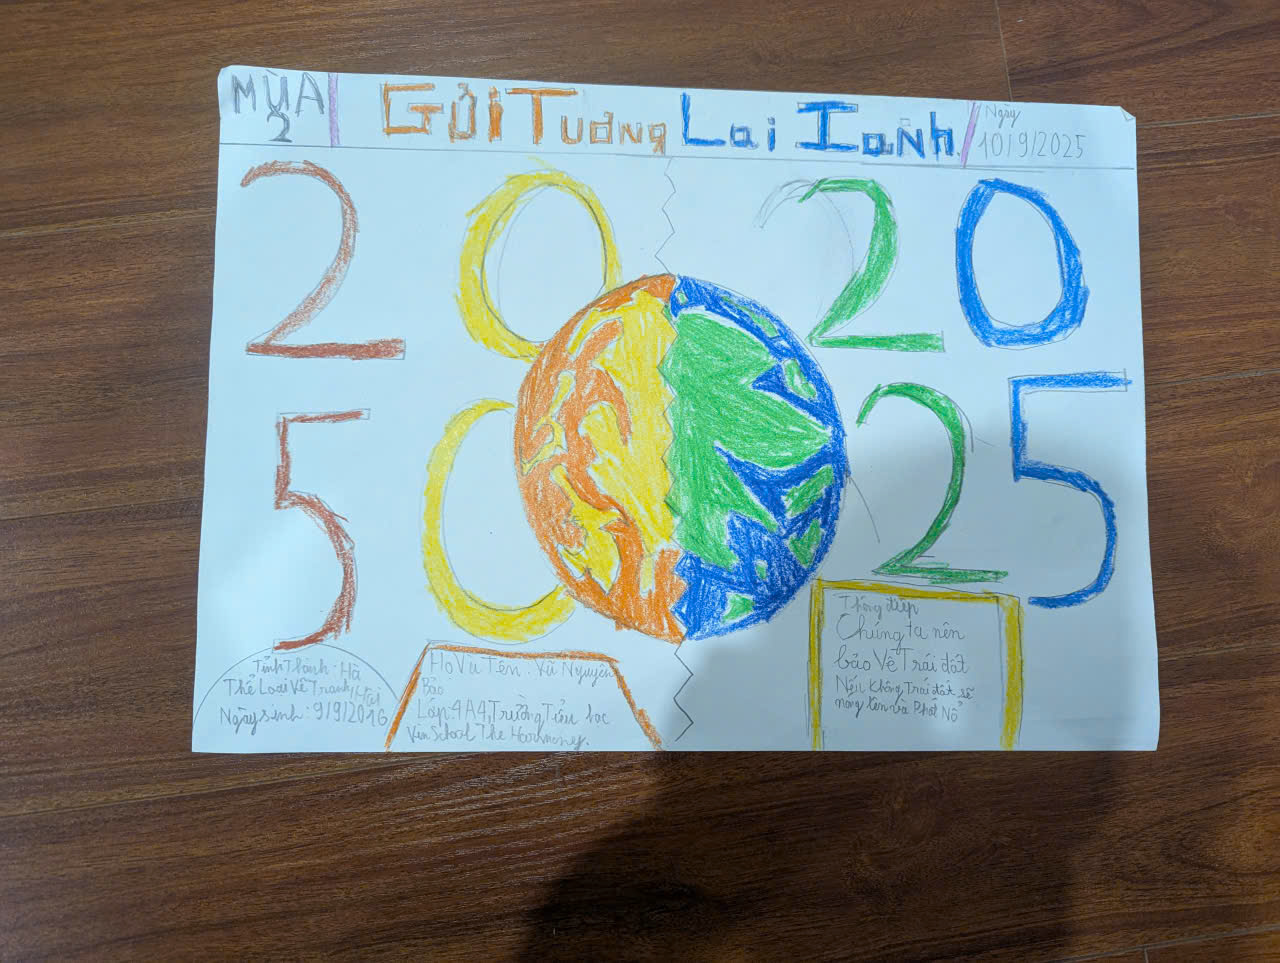 MÙA
2
GỬI Tương Lai Xanh.
Ngày
10/9/2025
20 20
50 25
Tỉnh Thành: Hà
Thể Loại Vẽ Tranh
Ngày sinh: 9/9/2016
Họ Và Tên: Vũ Nguyên
Bảo
Lớp 4A4, Trường Tiểu học
Vin School The Harmony.
Thông điệp
Chúng ta nên
bảo Vệ Trái đất
Nếu Không Trái đất sẽ
nóng lên và Phát Nổ